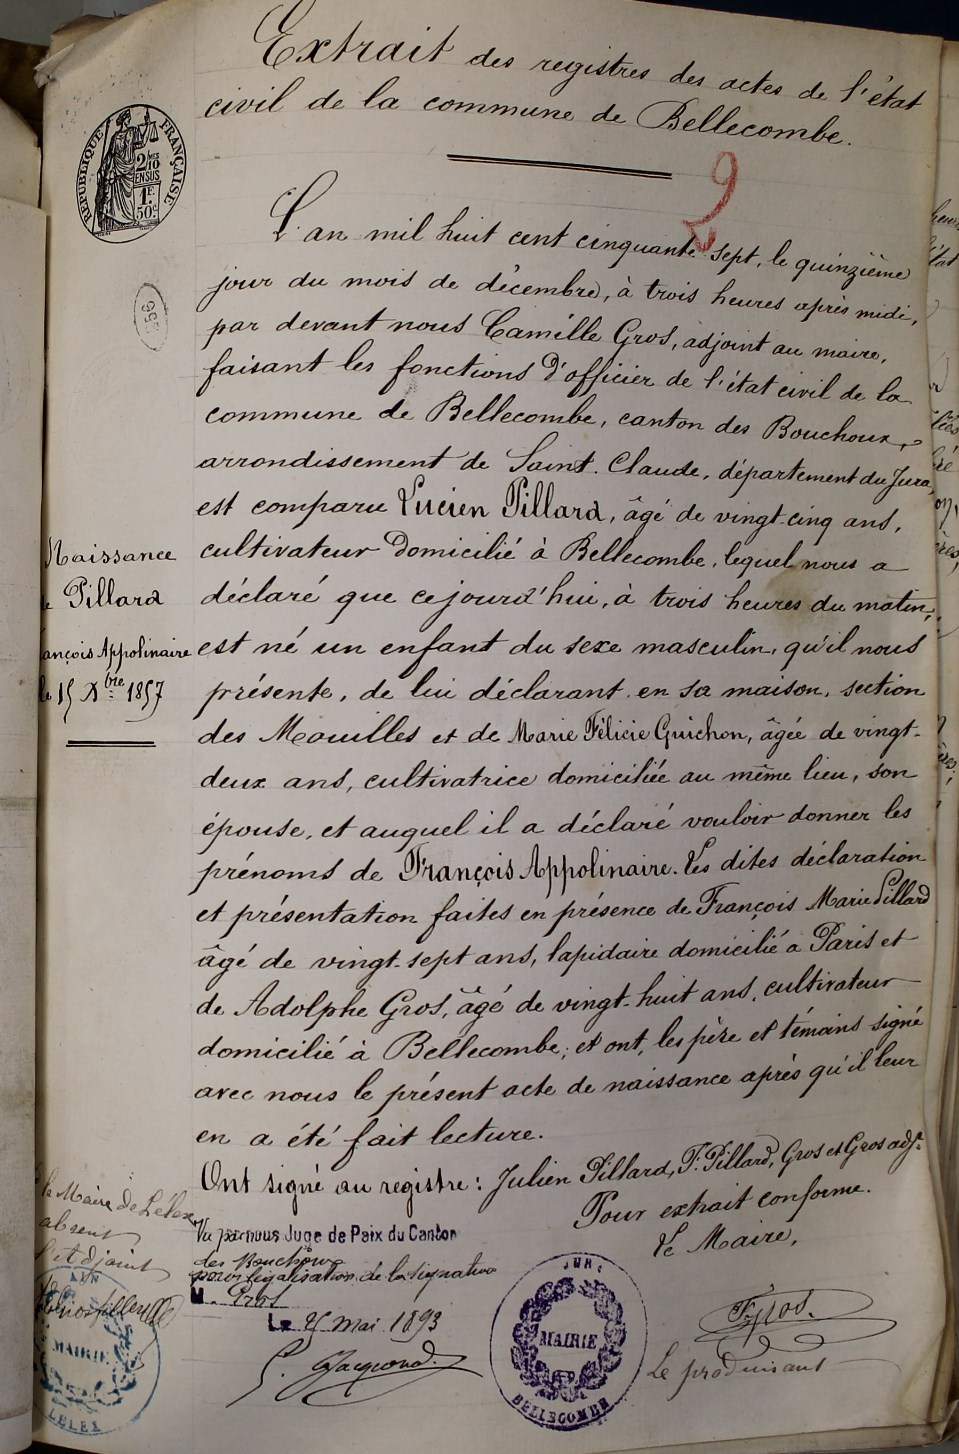 Extrait des registres des actes de l'état
civil de la commune de Bellecombe.
RÉPUBLIQUE FRANÇAISE
2/10
EN SUS
1F
50c
2
L'an mil huit cent cinquante sept, le quinzième
jour du mois de décembre, à trois heures après midi,
par devant nous Camille Gros, adjoint au maire,
faisant les fonctions d'officier de l'état civil de la
commune de Bellecombe, canton des Bouchoux,
arrondissement de Saint-Claude, département du Jura,
est comparu Lucien Pillard, âgé de vingt-cinq ans,
cultivateur domicilié à Bellecombe, lequel nous a
déclaré que cejourd'hui, à trois heures du matin,
est né un enfant du sexe masculin, qu'il nous
présente, de lui déclarant en sa maison, section
des Mouilles et de Marie Félicie Guichon, âgée de vingt-
deux ans, cultivatrice domiciliée au même lieu, son
épouse, et auquel il a déclaré vouloir donner les
prénoms de François Appolinaire. Les dites déclaration
et présentation faites en présence de François Marie Pillard
âgé de vingt-sept ans, lapidaire domicilié à Paris et
de Adolphe Gros, âgé de vingt-huit ans, cultivateur
domicilié à Bellecombe; et ont, les père et témoins signé
avec nous le présent acte de naissance après qu'il leur
en a été fait lecture.
Ont signé au registre: Julien Pillard, F. Pillard, Gros et Gros adjt
Pour extrait conforme.
Le Maire,
Naissance
de Pillard
François Appolinaire
le 15 Xbre 1857
Vu par nous Juge de Paix du Canton
des Bouchoux
pour légalisation de la signature
M. Gros
Le 25 mai 1893
le Maire de Lélex
absent
l'adjoint
AIN
MAIRIE
LELEX
JURA
MAIRIE
BELLECOMBE
Gros.
Le produisant